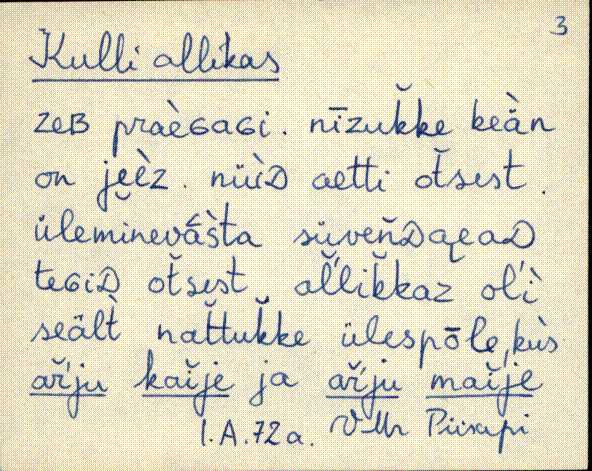 3
Kulli allikas
zeʙ praèɢaɢi. nīzuk̆ke keàn
on je̮èz. nüüᴅ aetti ot̆sest.
üleminevás̀ta süveňᴅaɐaᴅ
teɢiᴅ ot̆sest al̆'lik̆kaz ol'ì
seäl̀t nat̆tuk̆ke ülespōle, kùs
ar̆'ju kaĭje ja ar̆'ju maĭje
I.A.72a. VMr Piirupi